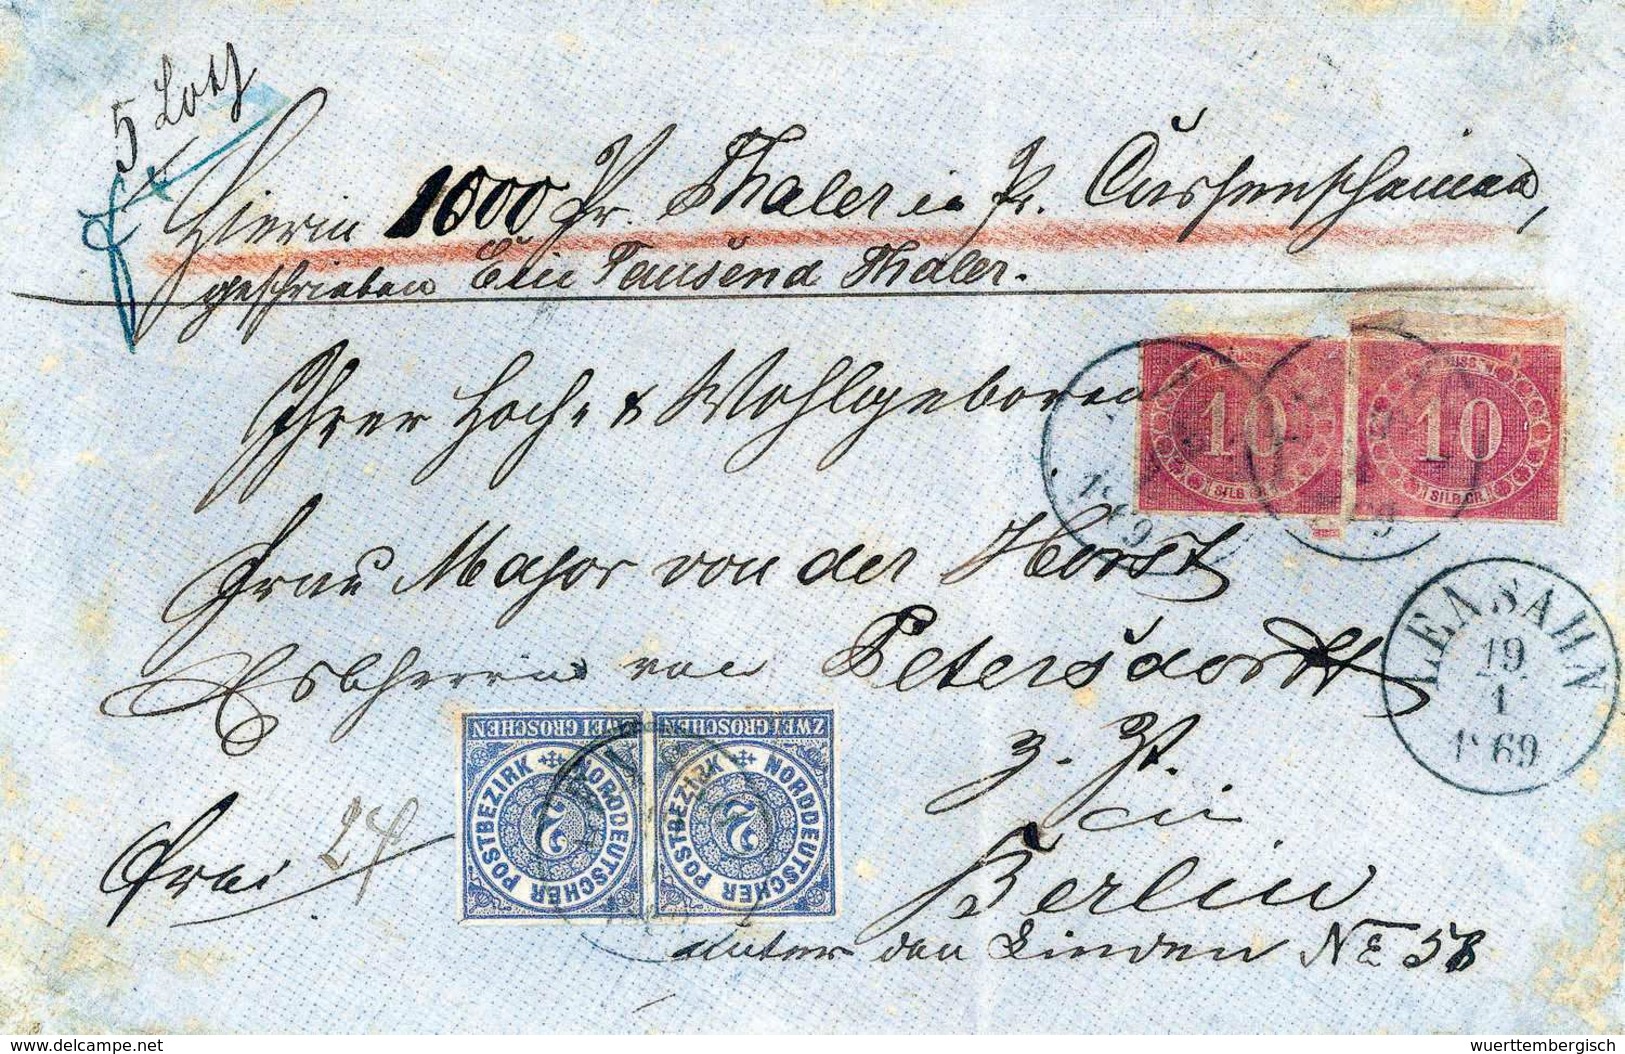 5 Loth
Hierin 1000 Pr. Thaler in Pr. Cassenscheinen,
geschrieben Ein Tausend Thaler.
Ihrer Hoch- & Wohlgeboren
10
SILB.GR.
10
SILB.GR.
1869
Frau Major von der Horst
LENSAHN
19
1
1869
Erbherrin von Petersdorff
ZWEI GROSCHEN
NORDDEUTSCHER POSTBEZIRK
2
ZWEI GROSCHEN
NORDDEUTSCHER POSTBEZIRK
2
z. Zt.
in
frei 24
Berlin
unter den Linden No 58
www.delcampe.net
wuerttembergisch